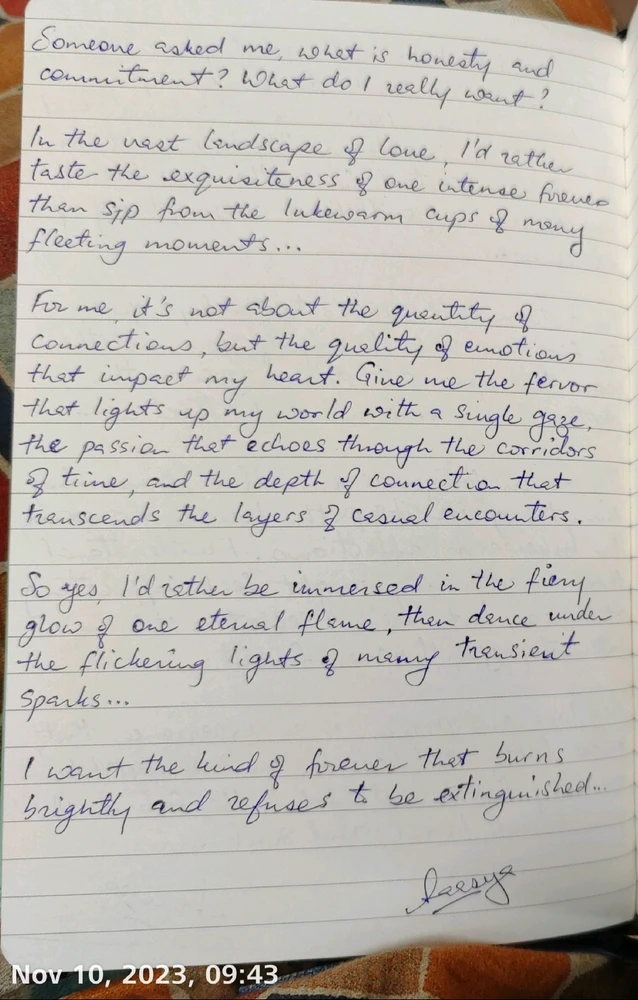 Someone asked me, what is honesty and
commitment? What do I really want?
In the vast landscape of love, I'd rather
taste the exquisiteness of one intense forever
than sip from the lukewarm cups of many
fleeting moments...
For me, it's not about the quantity of
connections, but the quality of emotions
that impact my heart. Give me the fervor
that lights up my world with a single gaze,
the passion that echoes through the corridors
of time, and the depth of connection that
transcends the layers of casual encounters.
So yes, I'd rather be immersed in the fiery
glow of one eternal flame, than dance under
the flickering lights of many transient
sparks...
I want the kind of forever that burns
brightly and refuses to be extinguished...
Nov 10, 2023, 09:43